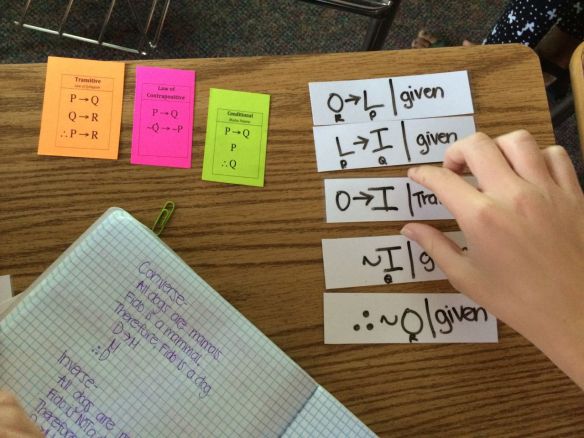 Transitive
Law of Syllogism
P → Q
Q → R
∴ P → R
Law of
Contrapositive
P → Q
~Q → ~P
Conditional
Modus Ponens
P → Q
P
∴ Q
O→L | given
R P
L→I | given
P Q
O→I | Tra
~I | g
Q
∴ ~O | given
R
Converse-
All dogs are mamals.
Fido is a mammal.
Therefore, Fido is a dog.
D→M
M
∴ D
Inverse-
All dogs are
Fido is NOT a
Therefore